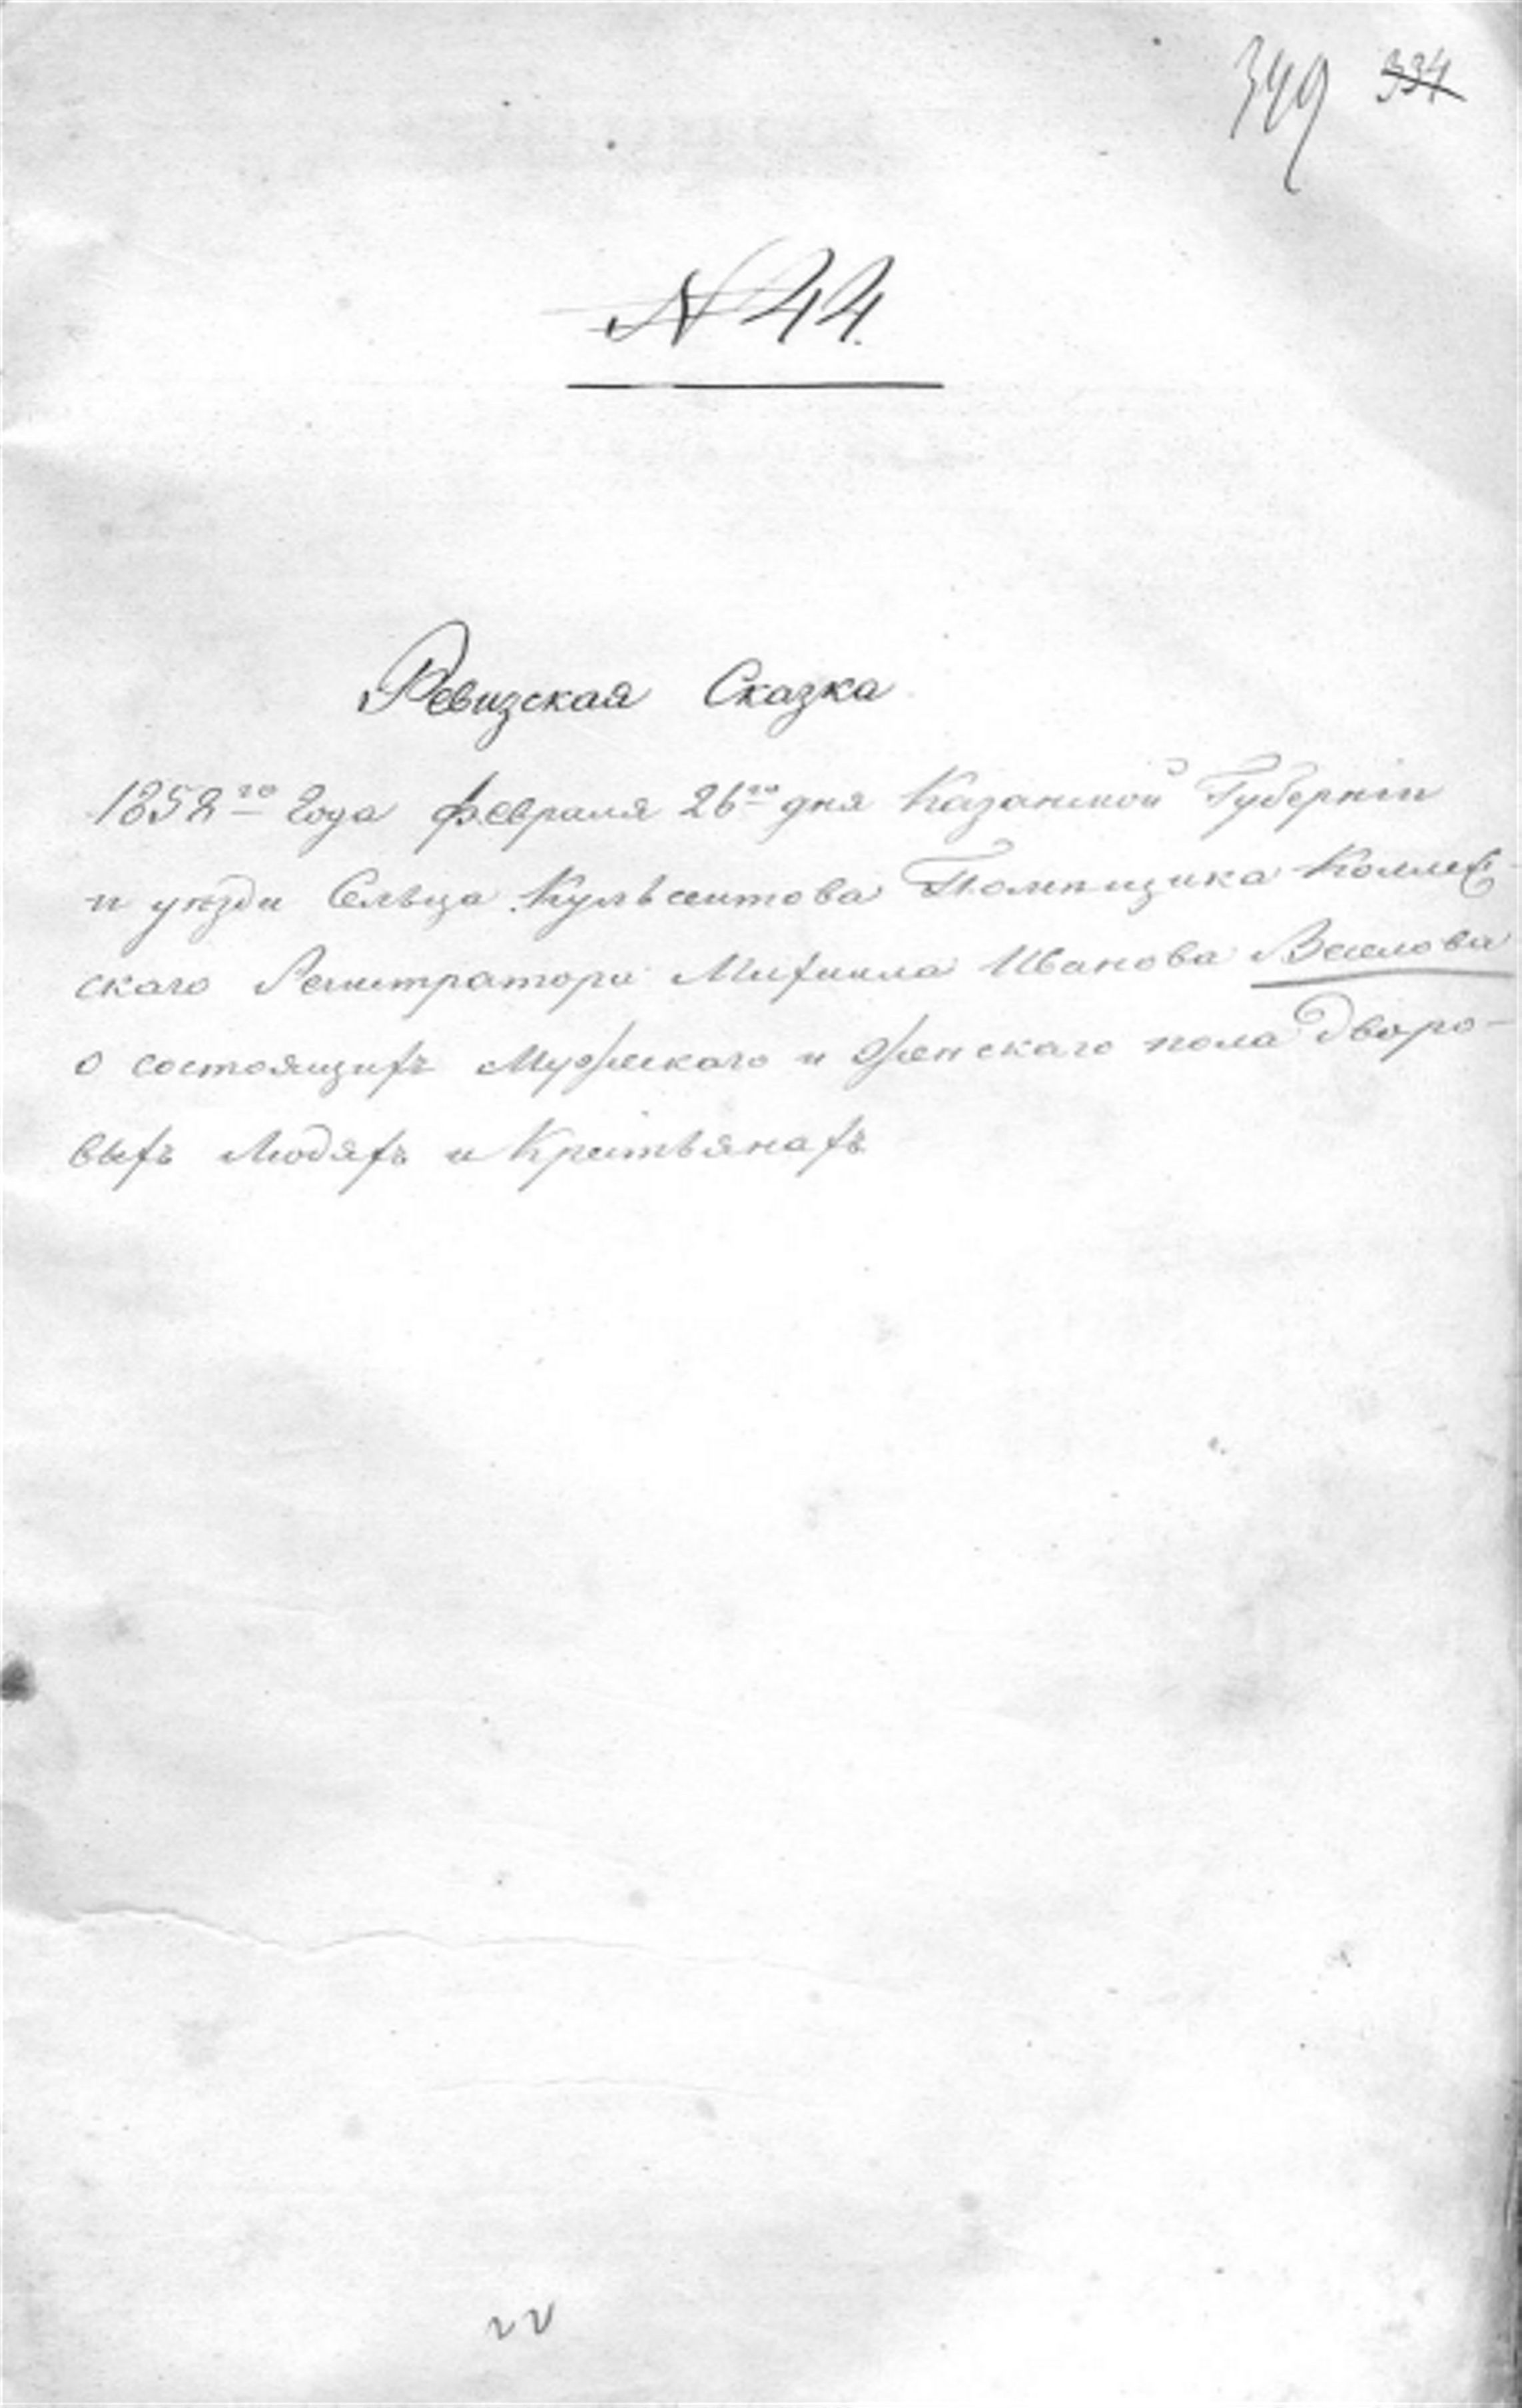 349 334
N 44.
Ревизская Сказка
1858го Года февраля 26го дня Казанской Губернiи
и уѣзда Сельца Кульсеитова Помѣщика Коллеж-
скаго Регистратора Михаила Иванова Веселова
о состоящихъ Мужескаго и Женскаго пола Дворо-
выхъ Людяхъ и Крестьянахъ